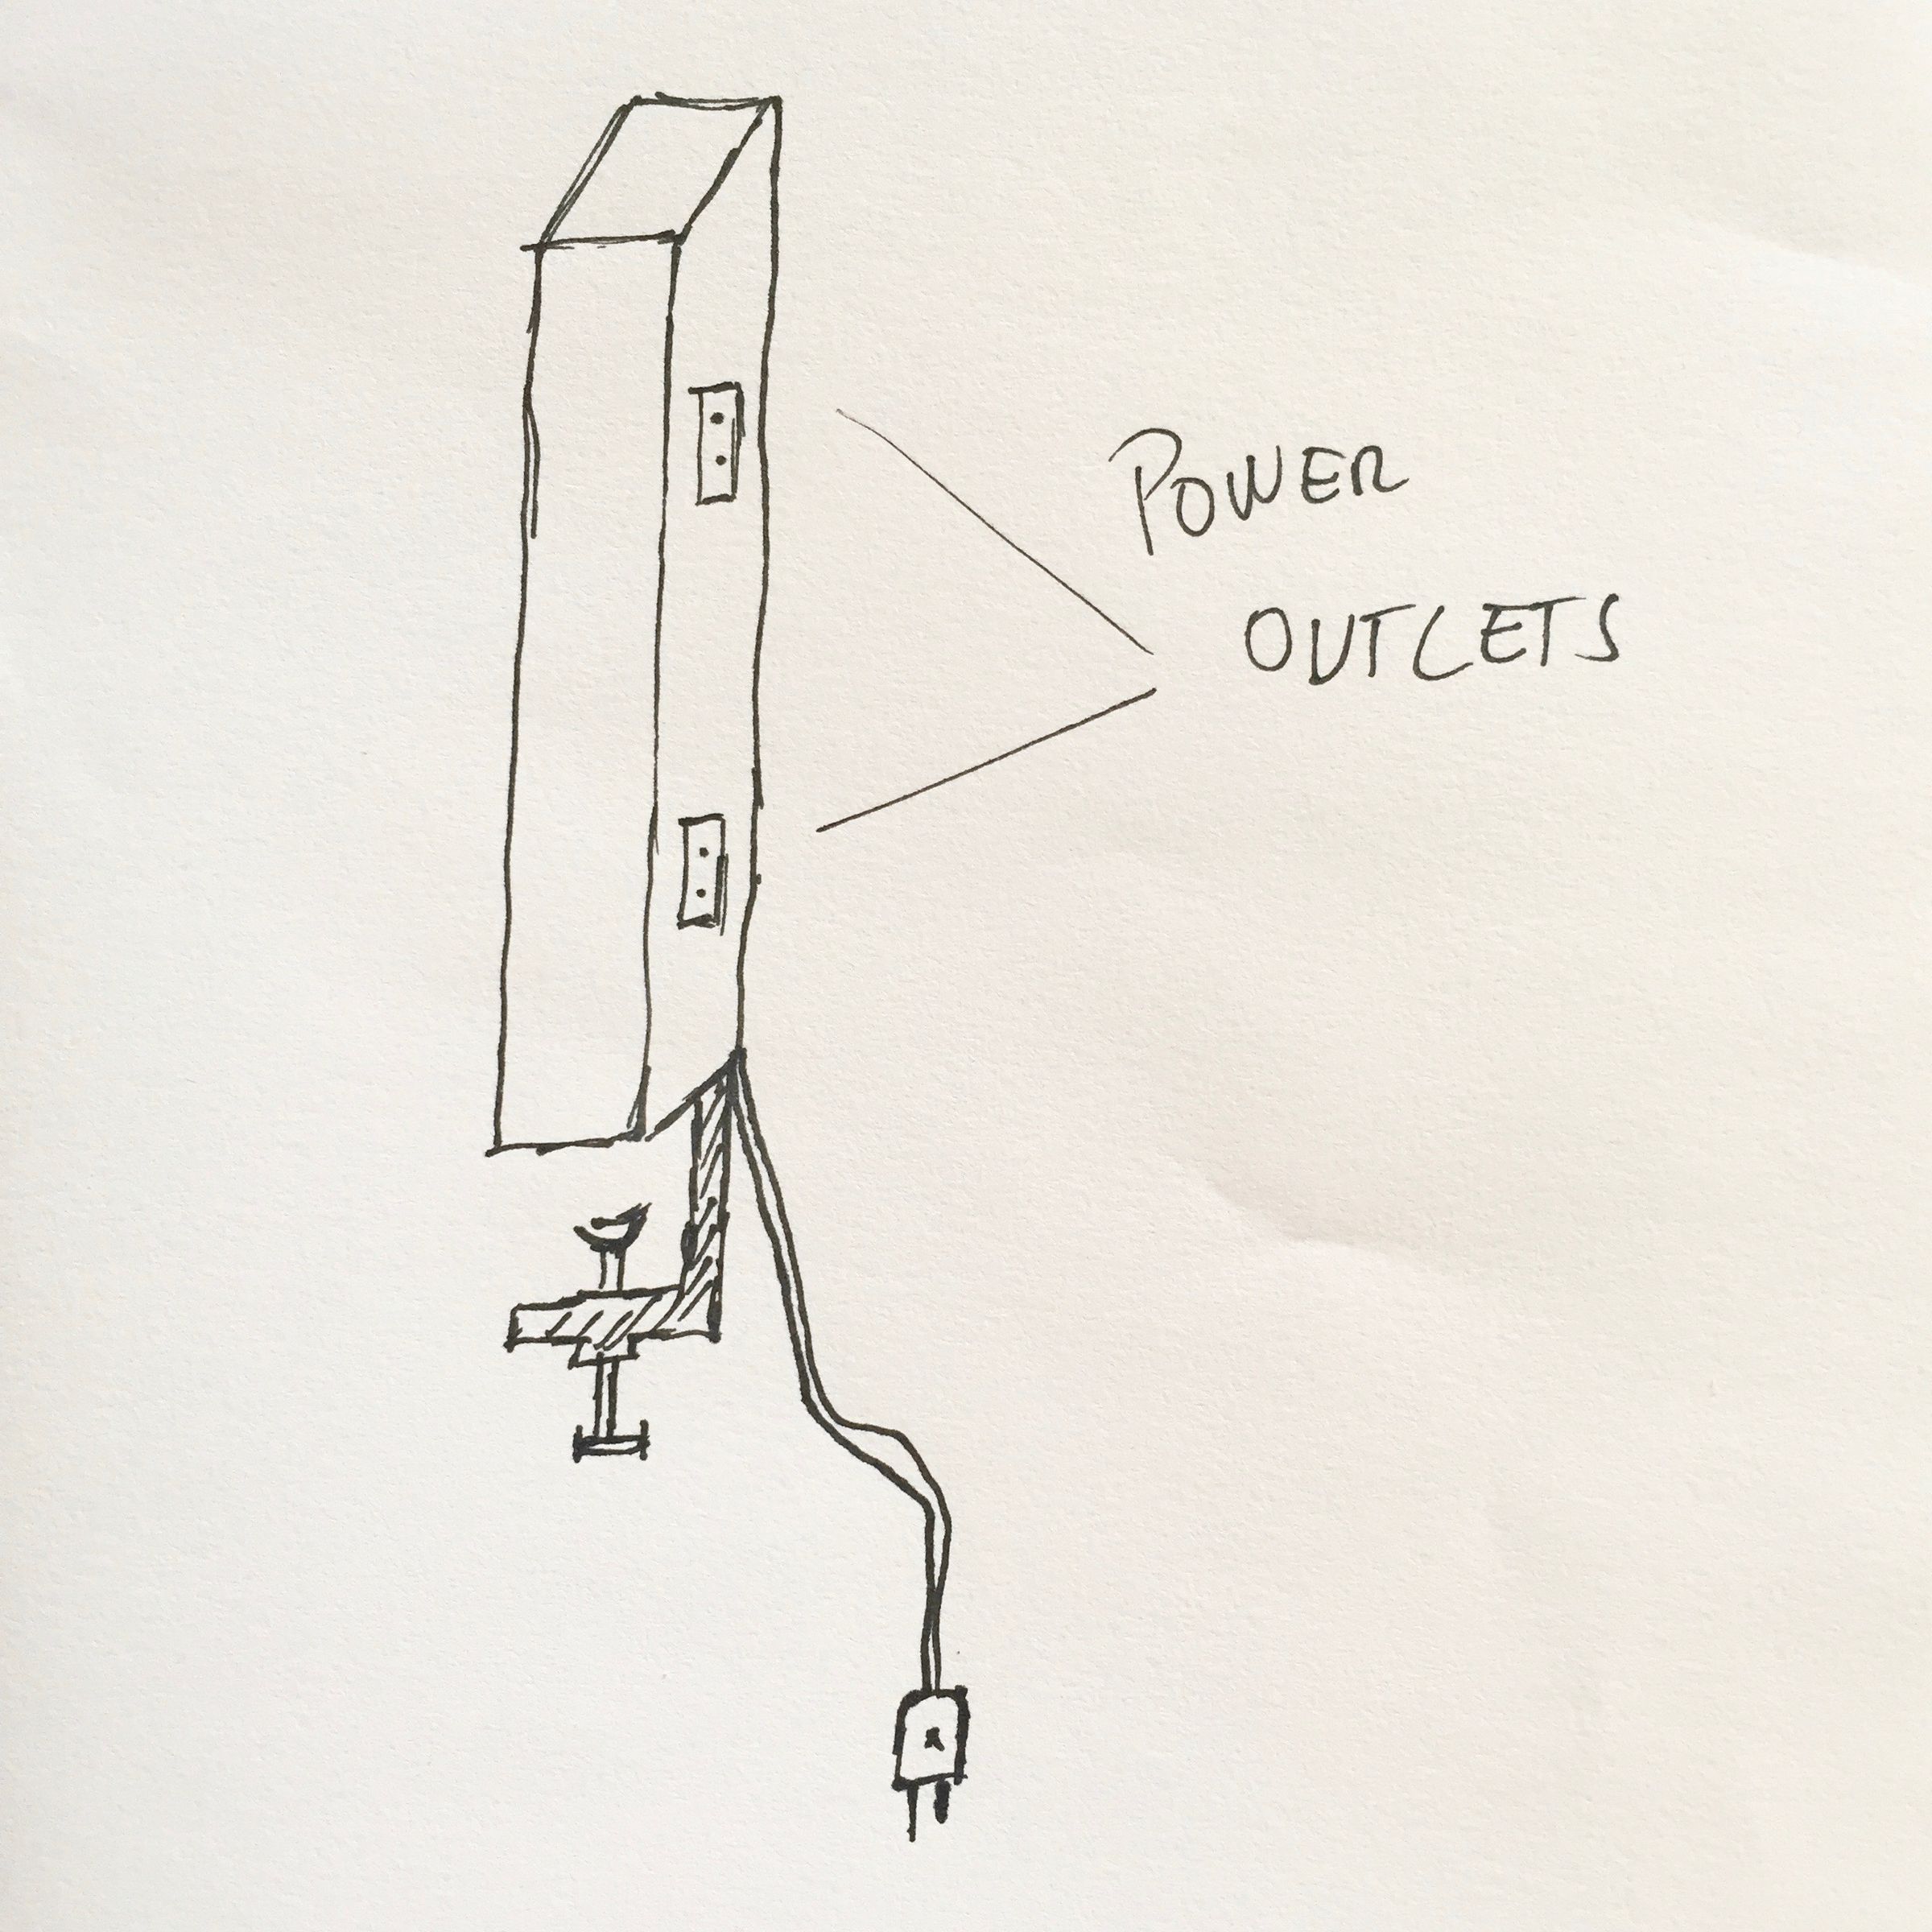 POWER
OUTLETS